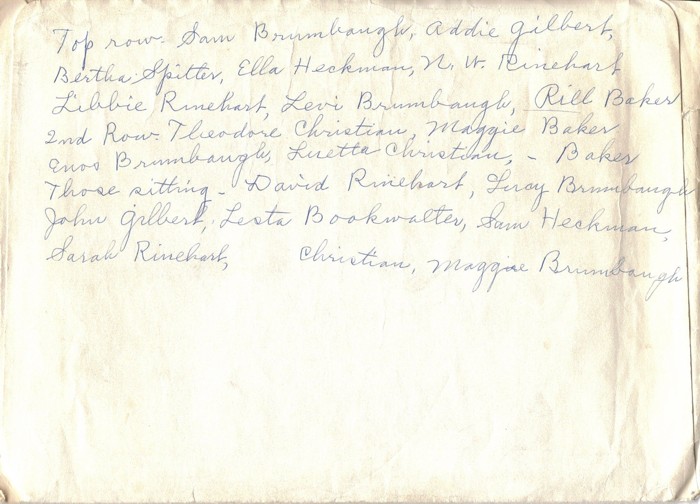 Top row. Sam Brumbaugh, Addie Gilbert,
Bertha Spitter, Ella Heckman, N. W. Rinehart
Libbie Rinehart, Levi Brumbaugh, Rill Baker
2nd Row. Theodore Christian, Maggie Baker
Enos Brumbaugh, Luetta Christian, - Baker
Those sitting - David Rinehart, Lucy Brumbaugh
John Gilbert, Lesta Bookwalter, Sam Heckman,
Sarah Rinehart, Christian, Maggie Brumbaugh